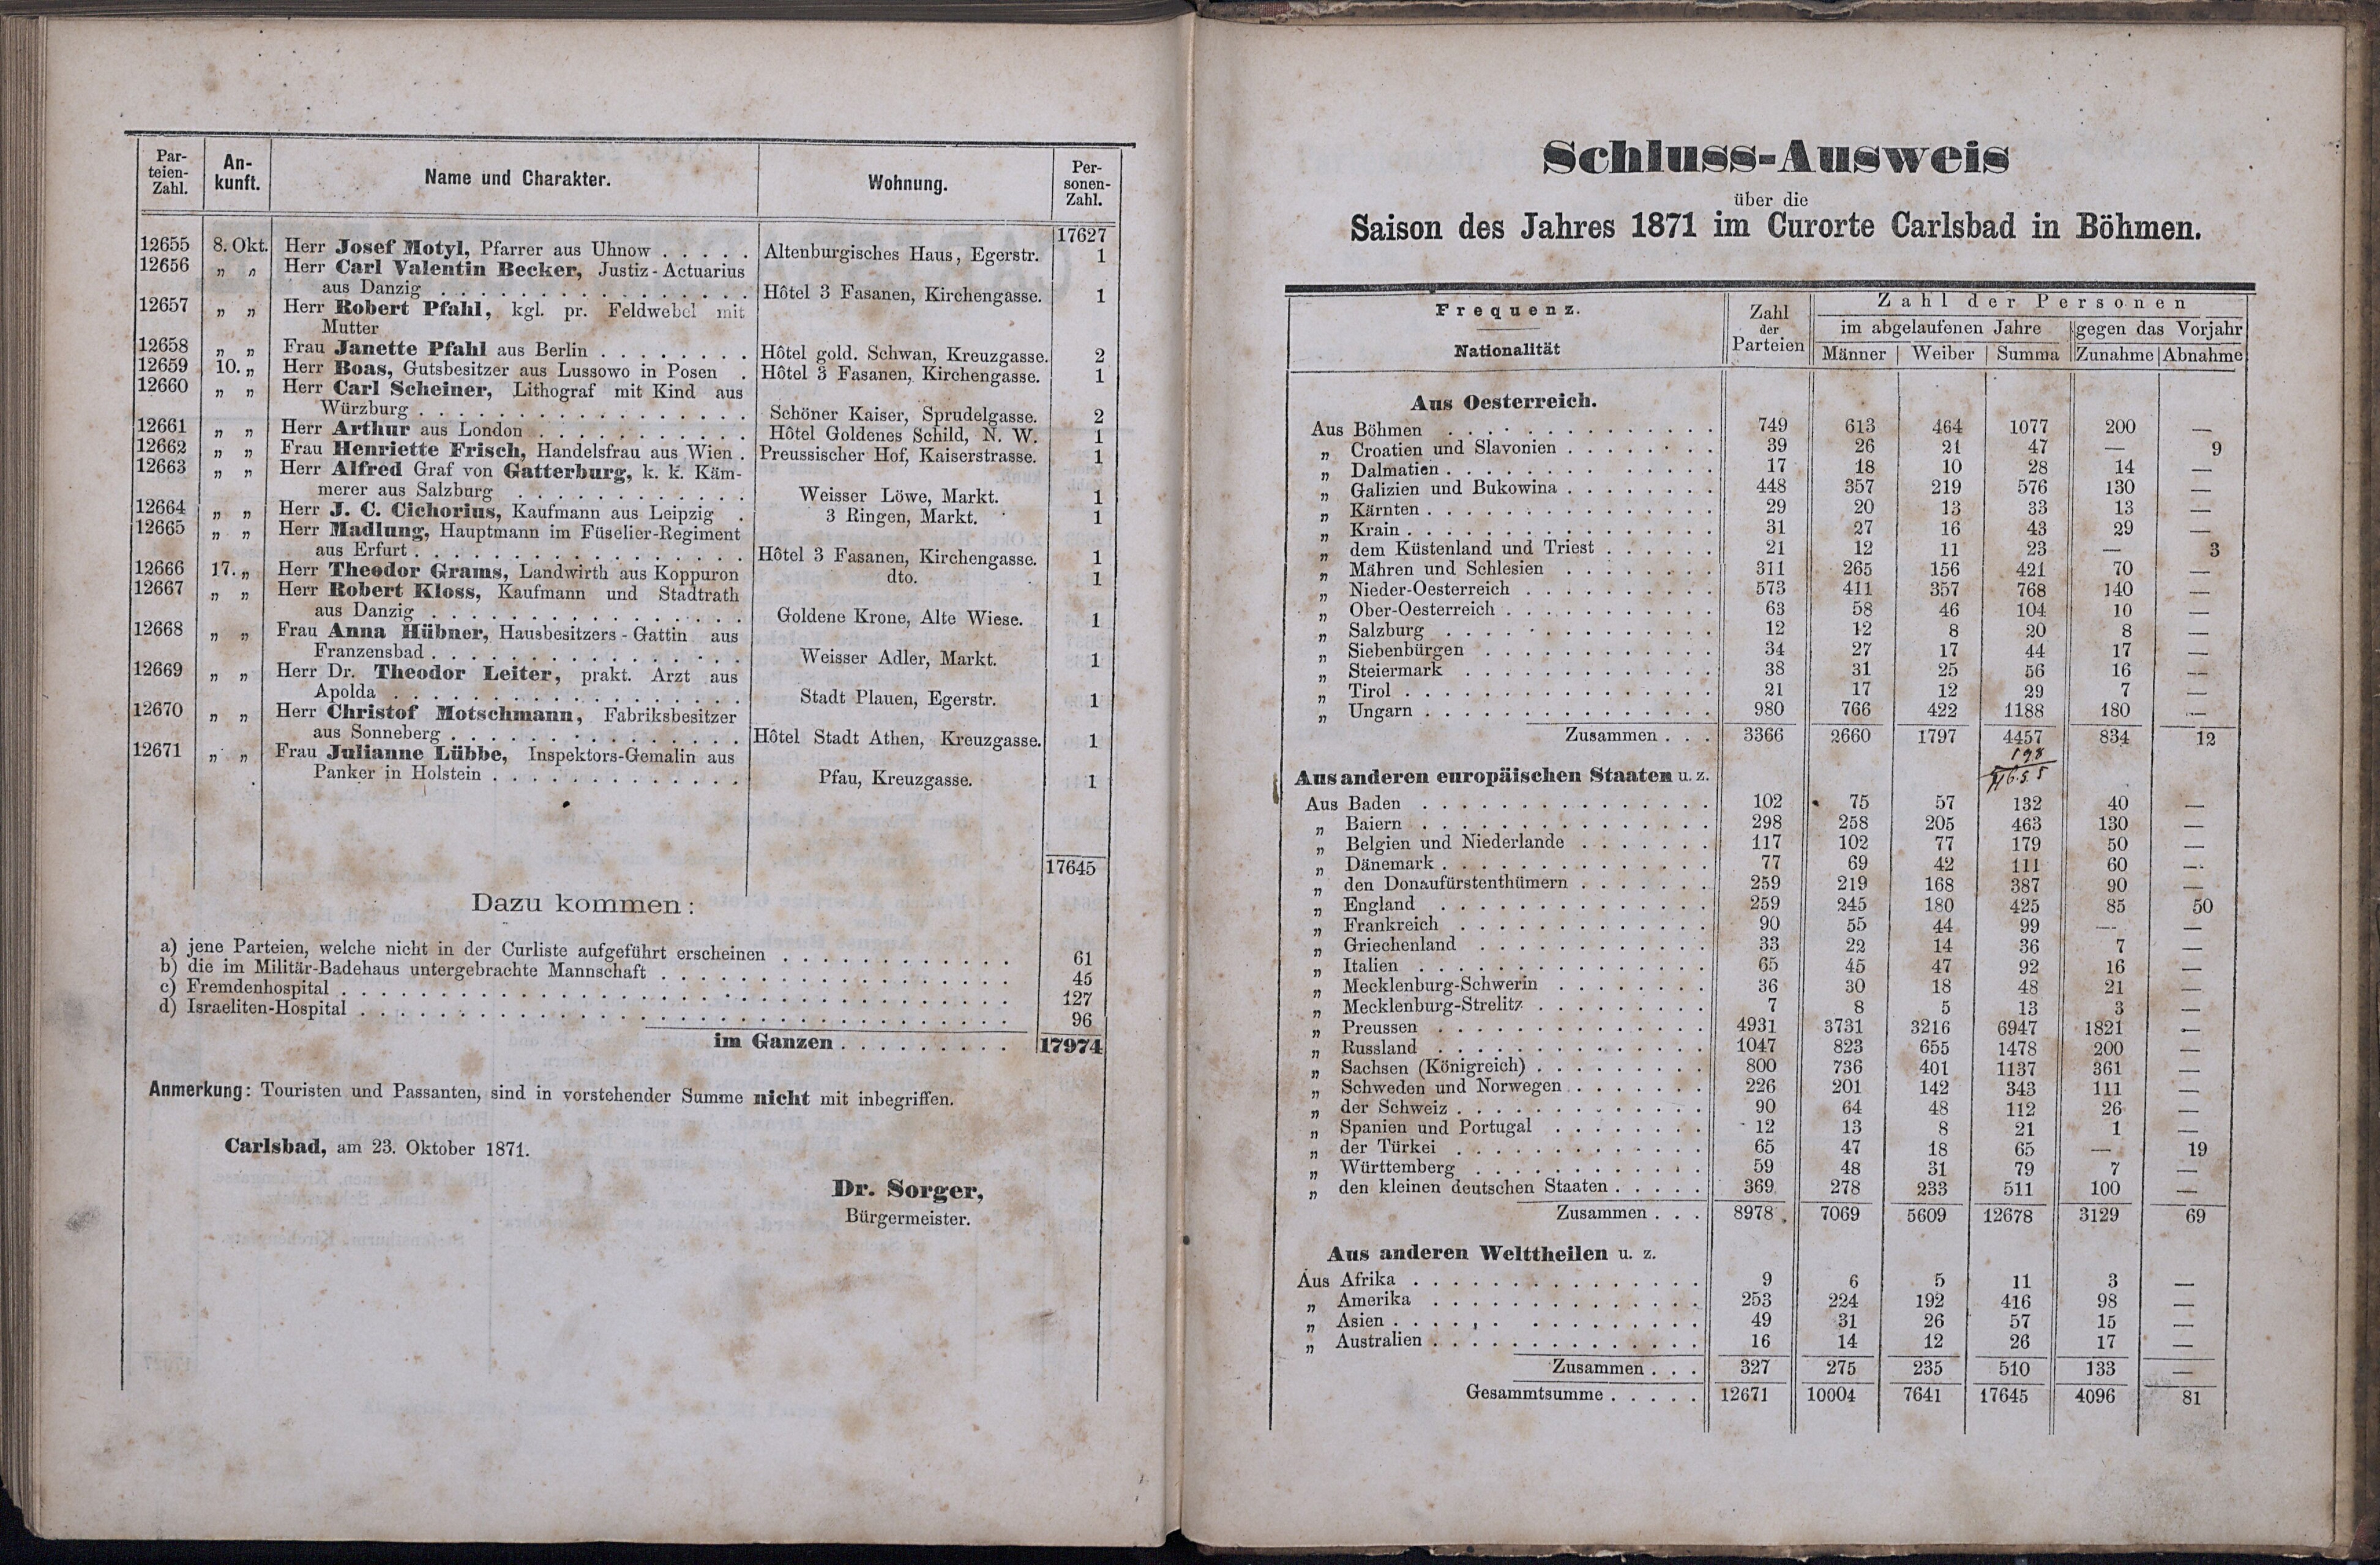 Par-teien-Zahl. | An-kunft. | Name und Charakter. | Wohnung. | Per-sonen-Zahl.
17627
12655 8. Okt. Herr Josef Motyl, Pfarrer aus Uhnow . . . . . Altenburgisches Haus, Egerstr. 1
12656 „ „ Herr Carl Valentin Becker, Justiz-Actuarius
aus Danzig . . . . . Hôtel 3 Fasanen, Kirchengasse. 1
12657 „ „ Herr Robert Pfahl, kgl. pr. Feldwebel mit
Mutter
12658 „ „ Frau Janette Pfahl aus Berlin . . . . . Hôtel gold. Schwan, Kreuzgasse. 2
12659 10. „ Herr Boas, Gutsbesitzer aus Lussowo in Posen . Hôtel 3 Fasanen, Kirchengasse. 1
12660 „ „ Herr Carl Scheiner, Lithograf mit Kind aus
Würzburg . . . . . Schöner Kaiser, Sprudelgasse. 2
12661 „ „ Herr Arthur aus London . . . . . Hôtel Goldenes Schild, N. W. 1
12662 „ „ Frau Henriette Frisch, Handelsfrau aus Wien . Preussischer Hof, Kaiserstrasse. 1
12663 „ „ Herr Alfred Graf von Gatterburg, k. k. Käm-
merer aus Salzburg . . . . . Weisser Löwe, Markt. 1
12664 „ „ Herr J. C. Cichorius, Kaufmann aus Leipzig . 3 Ringen, Markt. 1
12665 „ „ Herr Madlung, Hauptmann im Füselier-Regiment
aus Erfurt . . . . . Hôtel 3 Fasanen, Kirchengasse. 1
12666 17. „ Herr Theodor Grams, Landwirth aus Koppuron dto. 1
12667 „ „ Herr Robert Kloss, Kaufmann und Stadtrath
aus Danzig . . . . . Goldene Krone, Alte Wiese. 1
12668 „ „ Frau Anna Hübner, Hausbesitzers-Gattin aus
Franzensbad . . . . . Weisser Adler, Markt. 1
12669 „ „ Herr Dr. Theodor Leiter, prakt. Arzt aus
Apolda . . . . . Stadt Plauen, Egerstr. 1
12670 „ „ Herr Christof Motschmann, Fabriksbesitzer
aus Sonneberg . . . . . Hôtel Stadt Athen, Kreuzgasse. 1
12671 „ „ Frau Julianne Lübbe, Inspektors-Gemalin aus
Panker in Holstein . . . . . Pfau, Kreuzgasse. 1
17645
Dazu kommen:
a) jene Parteien, welche nicht in der Curliste aufgeführt erscheinen . . . . . 61
b) die im Militär-Badehaus untergebrachte Mannschaft . . . . . 45
c) Fremdenhospital . . . . . 127
d) Israeliten-Hospital . . . . . 96
im Ganzen . . . . . 17974
Anmerkung: Touristen und Passanten, sind in vorstehender Summe nicht mit inbegriffen.
Carlsbad, am 23. Oktober 1871.
Dr. Sorger,
Bürgermeister.
Schluss-Ausweis
über die
Saison des Jahres 1871 im Curorte Carlsbad in Böhmen.
Frequenz. | Zahl der Parteien | Zahl der Personen
im abgelaufenen Jahre | gegen das Vorjahr
Nationalität | Männer | Weiber | Summa | Zunahme | Abnahme
Aus Oesterreich.
Aus Böhmen . . . . . 749 613 464 1077 200 —
„ Croatien und Slavonien . . . . . 39 26 21 47 — 9
„ Dalmatien . . . . . 17 18 10 28 14 —
„ Galizien und Bukowina . . . . . 448 357 219 576 130 —
„ Kärnten . . . . . 29 20 13 33 13 —
„ Krain . . . . . 31 27 16 43 29 —
„ dem Küstenland und Triest . . . . . 21 12 11 23 — 3
„ Mähren und Schlesien . . . . . 311 265 156 421 70 —
„ Nieder-Oesterreich . . . . . 573 411 357 768 140 —
„ Ober-Oesterreich . . . . . 63 58 46 104 10 —
„ Salzburg . . . . . 12 12 8 20 8 —
„ Siebenbürgen . . . . . 34 27 17 44 17 —
„ Steiermark . . . . . 38 31 25 56 16 —
„ Tirol . . . . . 21 17 12 29 7 —
„ Ungarn . . . . . 980 766 422 1188 180 —
Zusammen . . . 3366 2660 1797 4457 834 12
198
Aus anderen europäischen Staaten u. z.
Aus Baden . . . . . 102 75 57 132 40 —
„ Baiern . . . . . 298 258 205 463 130 —
„ Belgien und Niederlande . . . . . 117 102 77 179 50 —
„ Dänemark . . . . . 77 69 42 111 60 —
„ den Donaufürstenthümern . . . . . 259 219 168 387 90 —
„ England . . . . . 259 245 180 425 85 50
„ Frankreich . . . . . 90 55 44 99 — —
„ Griechenland . . . . . 33 22 14 36 7 —
„ Italien . . . . . 65 45 47 92 16 —
„ Mecklenburg-Schwerin . . . . . 36 30 18 48 21 —
„ Mecklenburg-Strelitz . . . . . 7 8 5 13 3 —
„ Preussen . . . . . 4931 3731 3216 6947 1821 —
„ Russland . . . . . 1047 823 655 1478 200 —
„ Sachsen (Königreich) . . . . . 800 736 401 1137 361 —
„ Schweden und Norwegen . . . . . 226 201 142 343 111 —
„ der Schweiz . . . . . 90 64 48 112 26 —
„ Spanien und Portugal . . . . . 12 13 8 21 1 —
„ der Türkei . . . . . 65 47 18 65 — 19
„ Württemberg . . . . . 59 48 31 79 7 —
„ den kleinen deutschen Staaten . . . . . 369 278 233 511 100 —
Zusammen . . . 8978 7069 5609 12678 3129 69
Aus anderen Welttheilen u. z.
Aus Afrika . . . . . 9 6 5 11 3 —
„ Amerika . . . . . 253 224 192 416 98 —
„ Asien . . . . . 49 31 26 57 15 —
„ Australien . . . . . 16 14 12 26 17 —
Zusammen . . . 327 275 235 510 133 —
Gesammtsumme . . . . . 12671 10004 7641 17645 4096 81